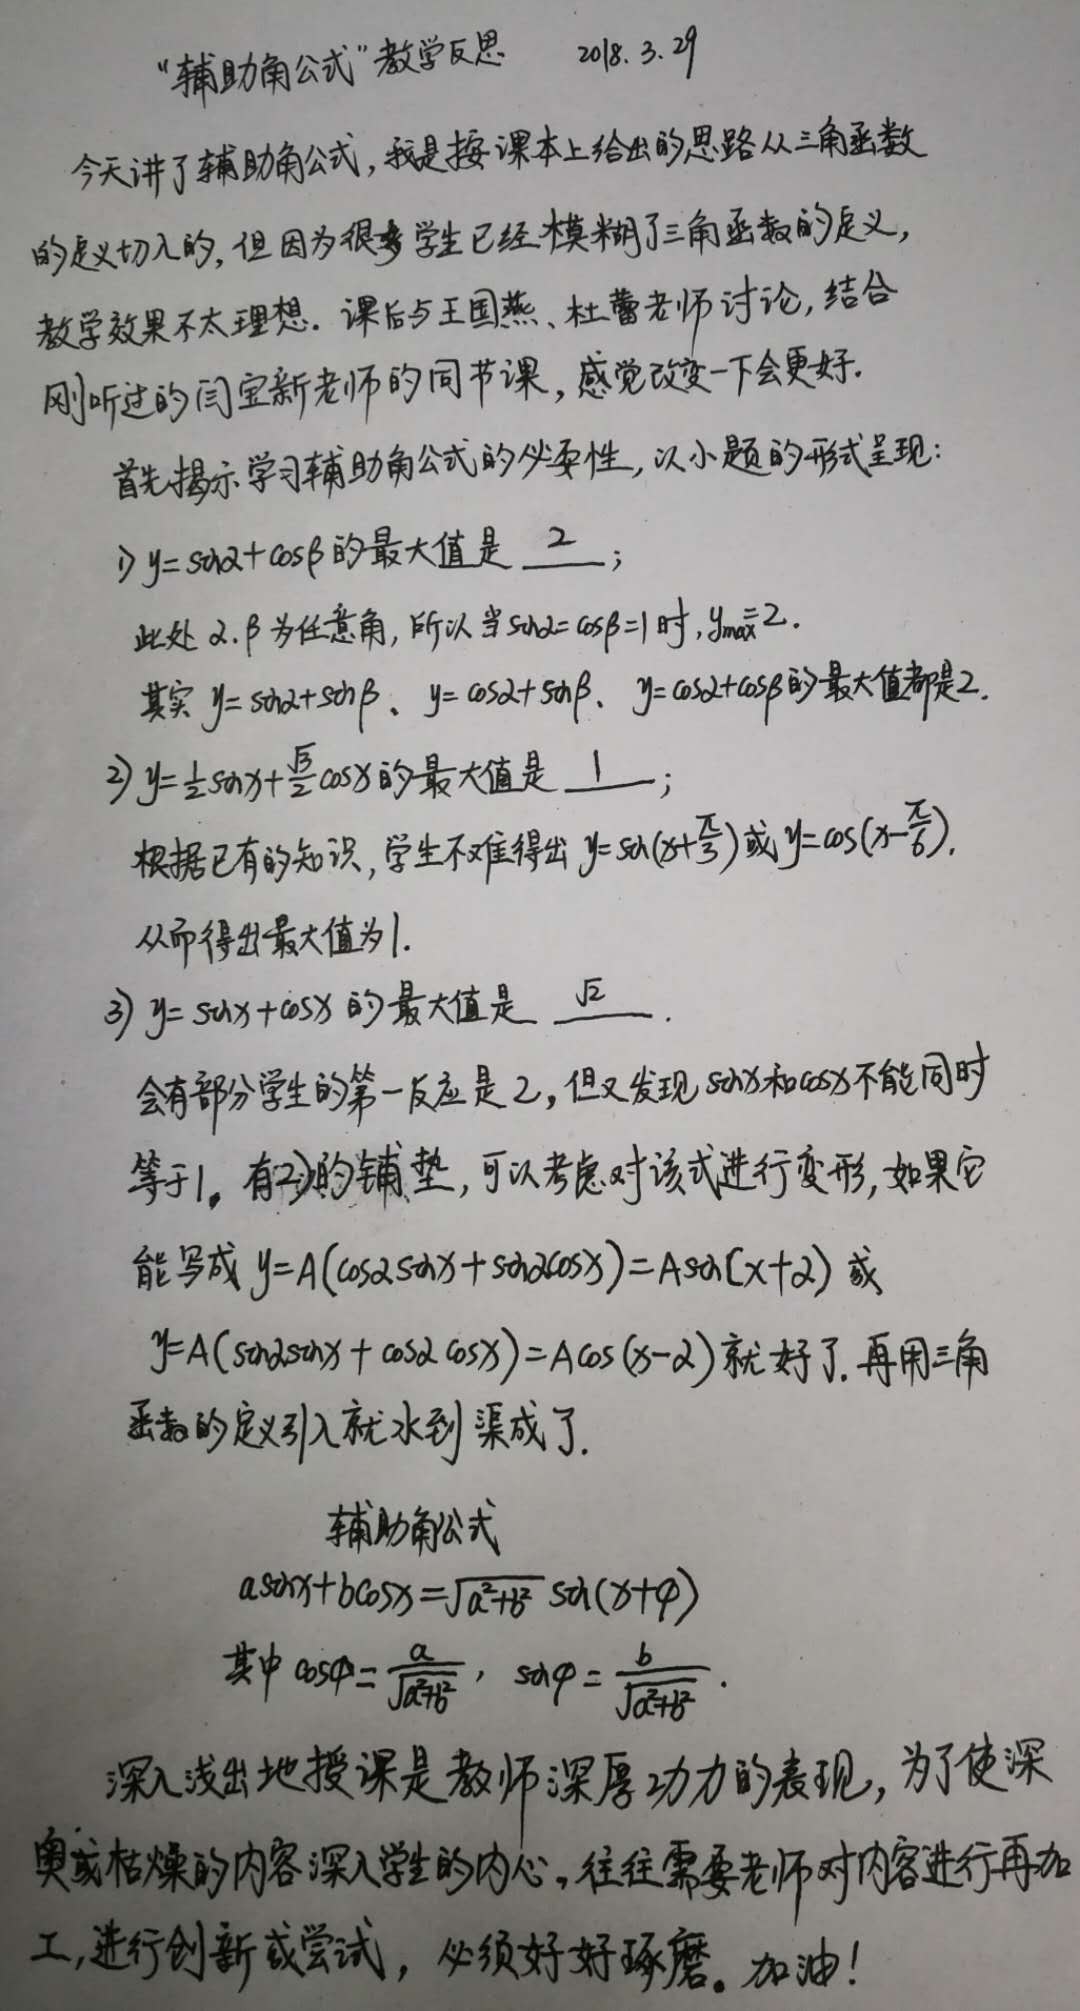 “辅助角公式”教学反思 2018.3.29
今天讲了辅助角公式,我是按课本上给出的思路从三角函数
的定义切入的,但因为很多学生已经模糊了三角函数的定义,
教学效果不太理想.课后与王国燕、杜蕾老师讨论,结合
刚听过的闫宝新老师的同节课,感觉改变一下会更好.
首先揭示学习辅助角公式的必要性,以小题的形式呈现:
1) y=sinα+cosβ的最大值是 2 ;
此处α.β为任意角,所以当sinα=cosβ=1时,ymax=2.
其实 y=sinα+sinβ、y=cosα+sinβ、y=cosα+cosβ的最大值都是2.
2) y=1/2 sinx+√3/2 cosx的最大值是 1 ;
根据已有的知识,学生不难得出 y=sin(x+π/3)或y=cos(x-π/6).
从而得出最大值为1.
3) y=sinx+cosx的最大值是 √2 .
会有部分学生的第一反应是2,但又发现sinx和cosx不能同时
等于1。有2)的铺垫,可以考虑对该式进行变形,如果它
能写成 y=A(cosαsinx+sinαcosx)=Asin(x+α)或
y=A(sinαsinx+cosαcosx)=Acos(x-α)就好了.再用三角
函数的定义引入就水到渠成了.
辅助角公式
asinx+bcosx=√(a²+b²) sin(x+φ)
其中 cosφ=a/√(a²+b²), sinφ=b/√(a²+b²).
深入浅出地授课是教师深厚功力的表现,为了使深
奥或枯燥的内容深入学生的内心,往往需要老师对内容进行再加
工,进行创新或尝试,必须好好琢磨。加油!